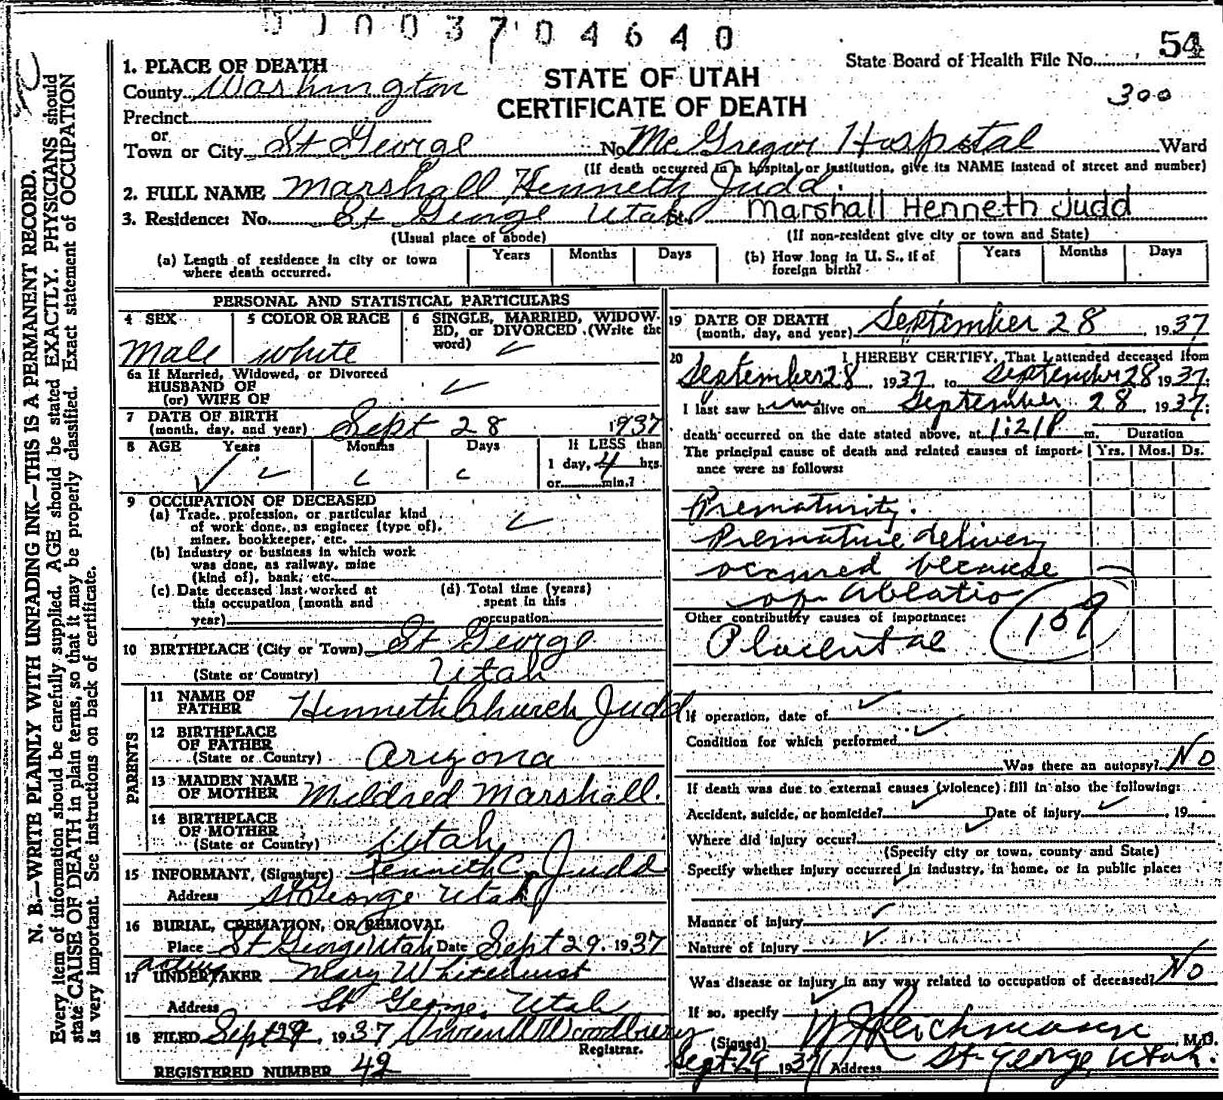 J J 0 0 3 7 0 4 6 4 0
54
State Board of Health File No.
300
STATE OF UTAH
CERTIFICATE OF DEATH
1. PLACE OF DEATH
County Washington
Precinct
or
Town or City St George No. McGregor Hospital Ward
(If death occurred in a hospital or institution, give its NAME instead of street and number)
2. FULL NAME Marshall Henneth Judd.
3. Residence: No. St George Utah St. Marshall Henneth Judd
(Usual place of abode) (If non-resident give city or town and State)
(a) Length of residence in city or town where death occurred. Years Months Days (b) How long in U. S., if of foreign birth? Years Months Days
PERSONAL AND STATISTICAL PARTICULARS
4 SEX 5 COLOR OR RACE 6 SINGLE, MARRIED, WIDOWED, or DIVORCED (Write the word)
Male white
6a If Married, Widowed, or Divorced
HUSBAND OF
(or) WIFE OF
7 DATE OF BIRTH
(month, day, and year) Sept 28 1937
8 AGE Years Months Days If LESS than
1 day, 4 hrs.
or min.?
9 OCCUPATION OF DECEASED
(a) Trade, profession, or particular kind
of work done, as engineer (type of),
miner, bookkeeper, etc.
(b) Industry or business in which work
was done, as railway, mine
(kind of), bank, etc.
(c) Date deceased last worked at
this occupation (month and
year)
(d) Total time (years)
spent in this
occupation
10 BIRTHPLACE (City or Town) St George
(State or Country) Utah
PARENTS
11 NAME OF
FATHER Henneth Church Judd
12 BIRTHPLACE
OF FATHER
(State or Country) Arizona
13 MAIDEN NAME
OF MOTHER Mildred Marshall.
14 BIRTHPLACE
OF MOTHER
(State or Country) Utah
15 INFORMANT, (Signature) Kenneth C. Judd
Address St George Utah
16 BURIAL, CREMATION, OR REMOVAL
Place St George Utah Date Sept 29. 1937
acting
17 UNDERTAKER Mary Whitehurst
Address St George, Utah
18 FILED Sept 29, 1937 Woodbury
Registrar.
REGISTERED NUMBER 42
19 DATE OF DEATH
(month, day, and year) September 28, 1937
20 I HEREBY CERTIFY, That I attended deceased from
September 28, 1937, to September 28 1937;
I last saw him alive on September 28, 1937;
death occurred on the date stated above, at 1:21 P m. Duration
The principal cause of death and related causes of importance were as follows: Yrs. Mos. Ds.
Prematurity.
Premature delivery
occured because
of Ablatio
Other contributory causes of importance:
Placentae
159
If operation, date of
Condition for which performed
Was there an autopsy? No
If death was due to external causes (violence) fill in also the following:
Accident, suicide, or homicide? Date of injury , 19
Where did injury occur?
(Specify city or town, county and State)
Specify whether injury occurred in industry, in home, or in public place:
Manner of injury
Nature of injury
Was disease or injury in any way related to occupation of deceased? No
If so, specify
(Signed) W J Reichmann, M.D.
Sept 29 1937 Address St George, Utah.
N. B.—WRITE PLAINLY WITH UNFADING INK—THIS IS A PERMANENT RECORD.
Every item of information should be carefully supplied. AGE should be stated EXACTLY. PHYSICIANS should
state CAUSE OF DEATH in plain terms, so that it may be properly classified. Exact statement of OCCUPATION
is very important. See instructions on back of certificate.